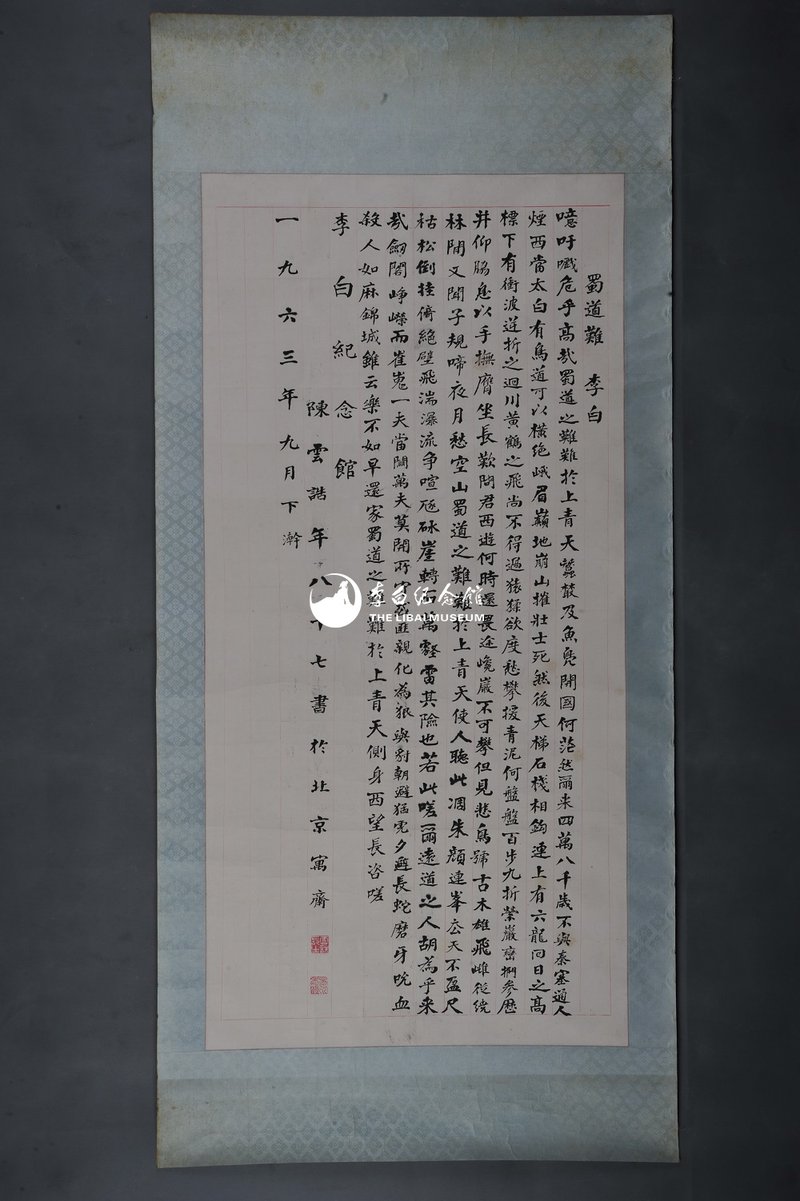 蜀道難 李白
噫吁嚱危乎高哉蜀道之難難於上青天蠶叢及魚鳧開國何茫然爾来四萬八千歲不與秦塞通人
煙西當太白有鳥道可以橫絶峨眉巔地崩山摧壯士死然後天梯石棧相鈎連上有六龍回日之高
標下有衝波逆折之迴川黃鶴之飛尚不得過猿猱欲度愁攀援青泥何盤盤百步九折縈巖巒捫參歷
井仰脇息以手撫膺坐長歎問君西遊何時還畏途巉巖不可攀但見悲鳥號古木雄飛雌從繞
林間又聞子規啼夜月愁空山蜀道之難難於上青天使人聽此凋朱顔連峯去天不盈尺
枯松倒挂倚絶壁飛湍瀑流争喧豗砯崖轉石萬壑雷其險也若此嗟爾遠道之人胡為乎来
哉劒閣崢嶸而崔嵬一夫當關萬夫莫開所守或匪親化為狼與豺朝避猛虎夕避長蛇磨牙吮血
殺人如麻錦城雖云樂不如早還家蜀道之難難於上青天側身西望長咨嗟
李白紀念館
陳雲誥年八十七書於北京寓齋
一九六三年九月下澣
李白纪念馆
THE LIBAI MUSEUM